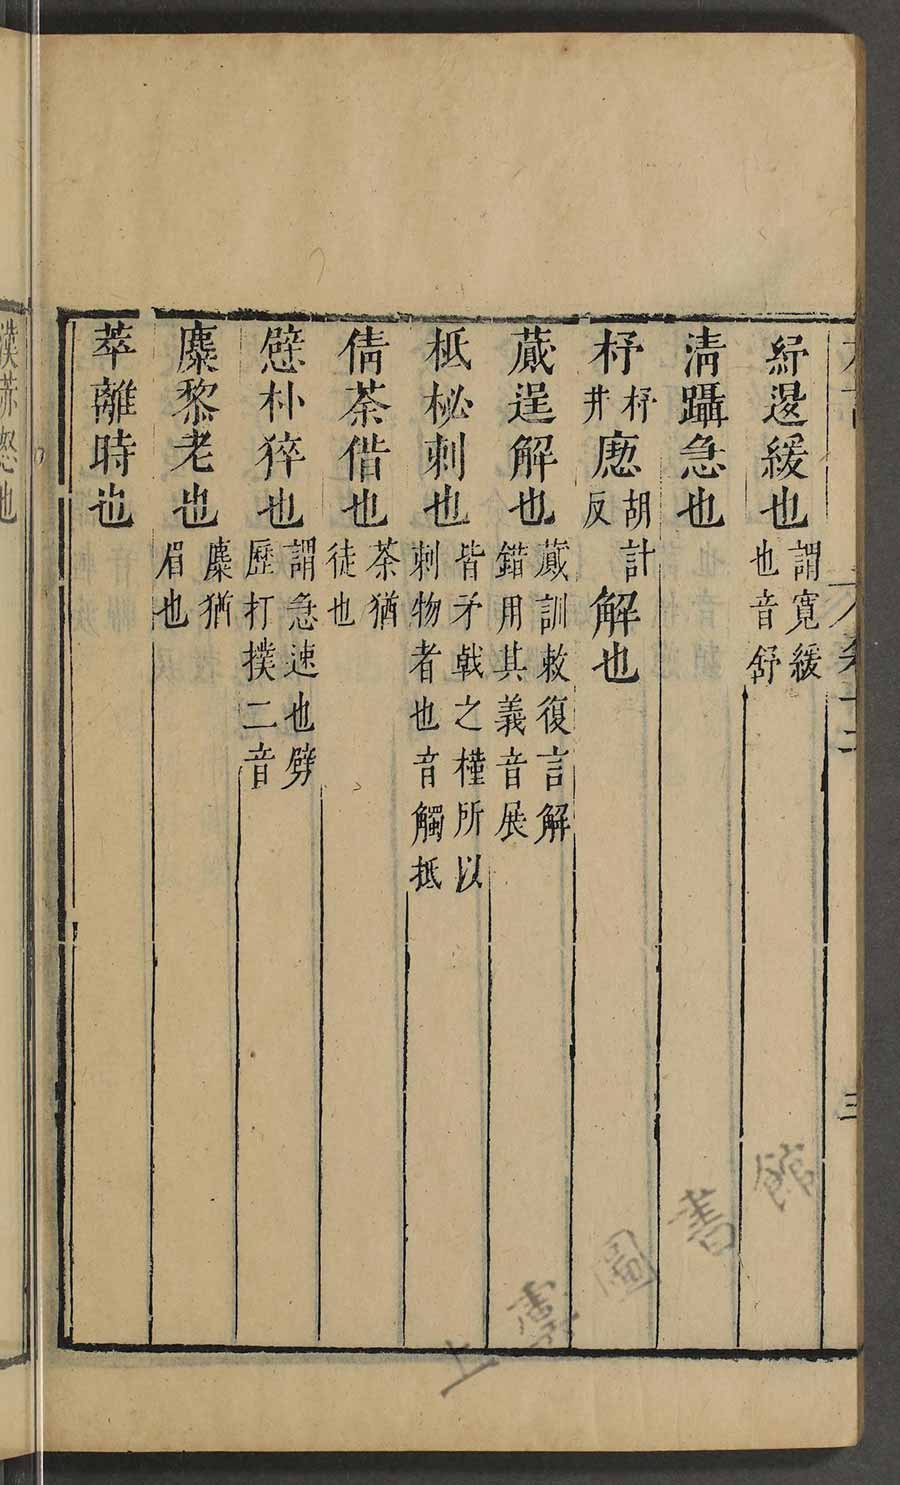 紓𨖷緩也謂寬緩也音舒
清躡急也
杼杼井㾜胡計反解也
蕆逞解也蕆訓敕復言解錯用其義音展
柢柲刺也皆矛戟之槿所以刺物者也音觸抵
倩荼借也荼猶徒也
㦣朴猝也謂急速也劈歷打撲二音
麋黎老也麋猶眉也
萃離時也
三
上虞圖書館